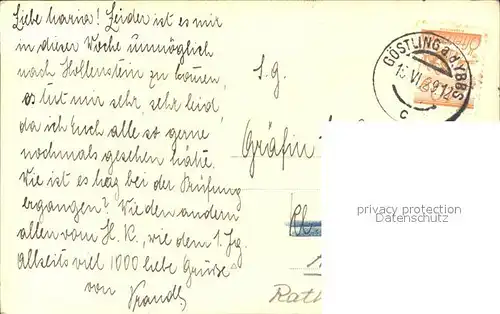 Liebe Maria! Leider ist es mir
in dieser Woche unmöglich
nach Hollenstein zu kommen,
es tut mir sehr, sehr leid
da ich Euch alle so gerne
nochmals gesehen hätte.
Wie ist es bei der Prüfung
ergangen? Wie den andern
allen vom H. K., wie dem 1. Jg.
Allseits viel 1000 liebe Grüße
von
S. G.
Gräfin
Rath
GÖSTLING a.d. YBBS
VI 29 12
C
privacy protection
Datenschutz